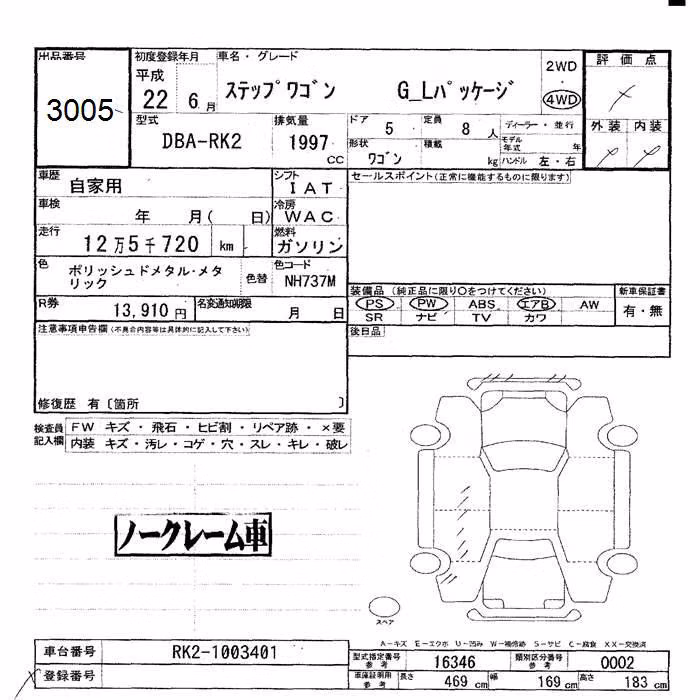 出品番号
3005
初度登録年月
平成
22 6 月
車名・グレード
ステップワゴン G_Lパッケージ
2WD
・
4WD
評価点
外装 内装
型式
DBA-RK2
排気量
1997
CC
ドア
5
定員
8 人
ディーラー・並行
形状
ワゴン
積載
kg
モデル年式 年
ハンドル 左・右
車歴
自家用
シフト
IAT
車検
年 月( 日)
冷房
WAC
走行
12万5千720 km
燃料
ガソリン
色
ポリッシュドメタル・メタリック
色替
色コード
NH737M
R券
13,910 円
名変通知期限
月 日
セールスポイント(正常に機能するものに限ります)
装備品 (純正品に限り○をつけてください)
PS PW ABS エアB AW
SR ナビ TV カワ
新車保証書
有・無
後日品
注意事項申告欄(不具合内容等は具体的に記入して下さい)
修復歴 有〔箇所 〕
検査員記入欄
FW キズ・飛石・ヒビ割・リペア跡・×要
内装 キズ・汚レ・コゲ・穴・スレ・キレ・破レ
ノークレーム車
スペア
A-キズ E-エクボ U-凹み W-補修跡 S-サビ C-腐食 XX-交換済
車台番号
RK2-1003401
登録番号
型式指定番号
参考
16346
類別区分番号
参考
0002
車庫証明用
参考
長さ 469 cm 幅 169 cm 高さ 183 cm